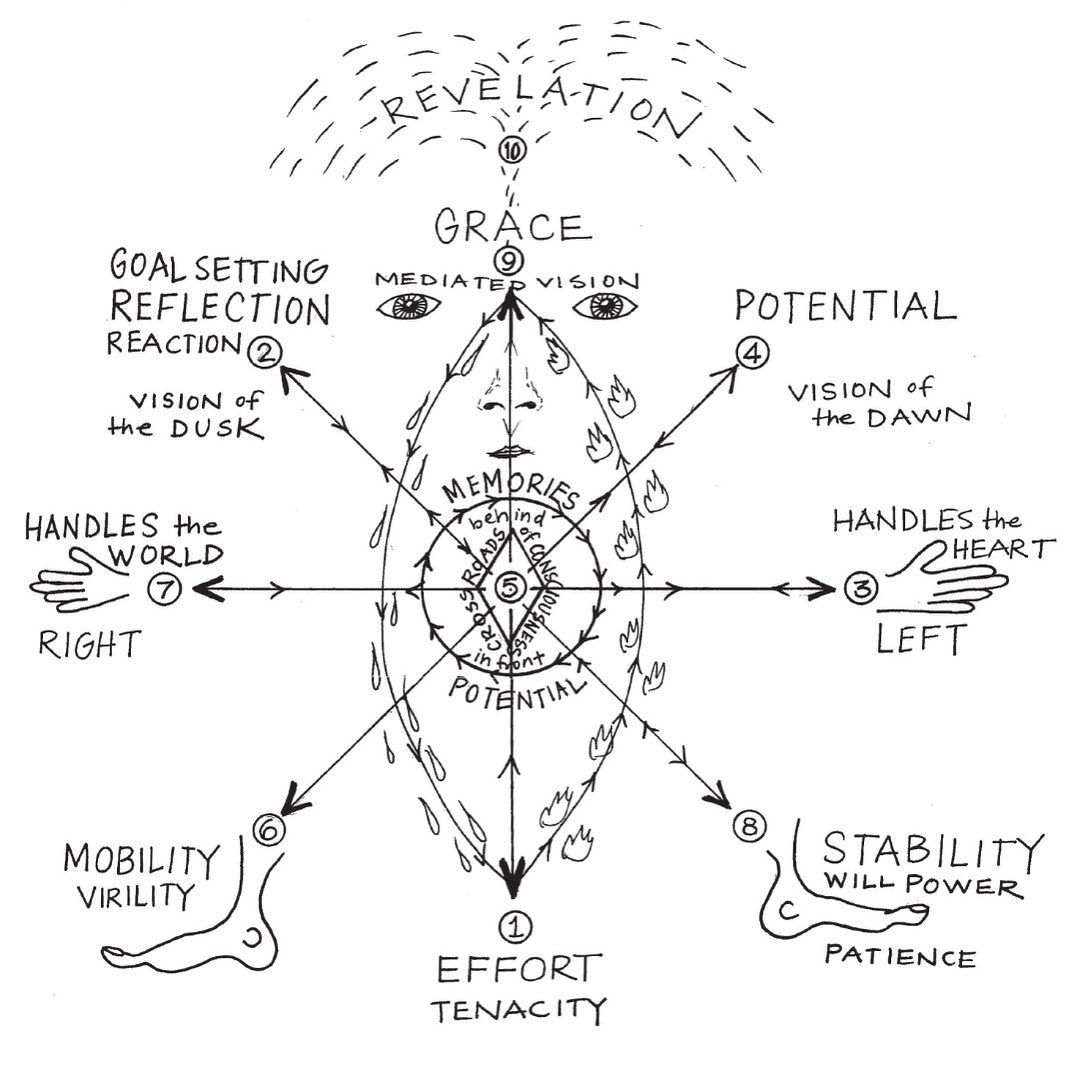 REVELATION
10
GRACE
9
MEDIATED VISION
GOAL SETTING
REFLECTION
REACTION 2
VISION of
the DUSK
POTENTIAL
4
VISION of
the DAWN
MEMORIES
behind
CROSS ROADS of CONSCIOUSNESS
5
in front
POTENTIAL
HANDLES the
WORLD
7
RIGHT
HANDLES the
HEART
3
LEFT
6
MOBILITY
VIRILITY
8
STABILITY
WILL POWER
PATIENCE
1
EFFORT
TENACITY